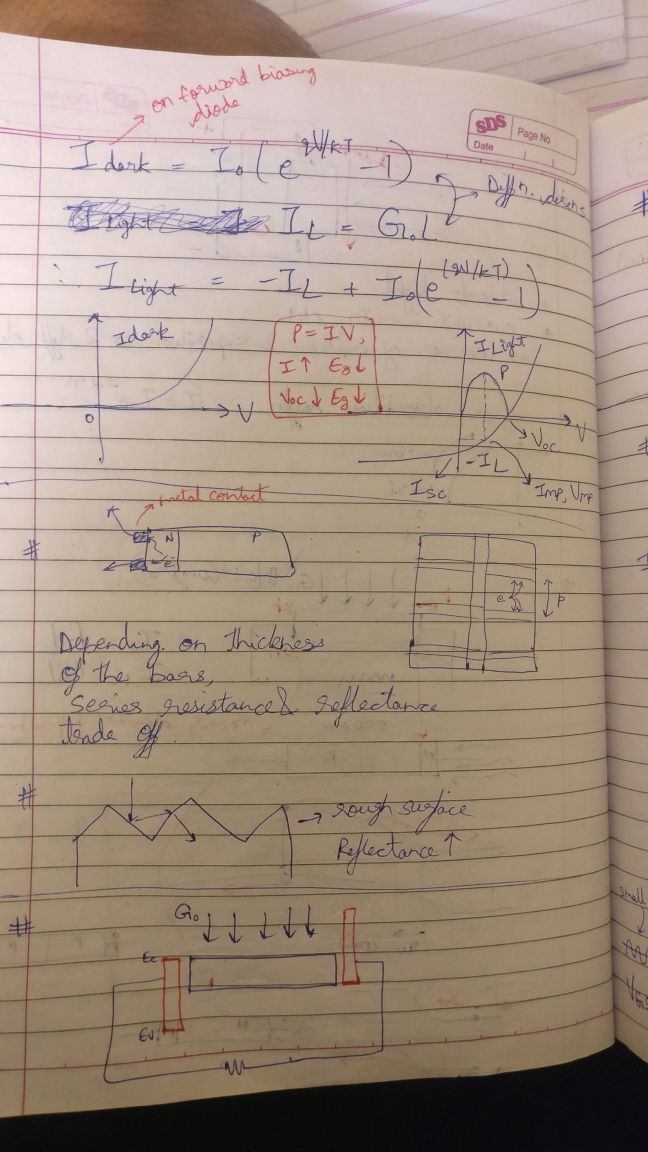 on forward biasing
diode
SDS
Page No
Date
I dark = I₀ ( e^qV/kT - 1 )
I_L = G₀L
∴ I Light = -I_L + I₀(e^(qV/kT) - 1)
I dark
V
0
P = IV,
I ↑ Eg ↓
Voc ↓ Eg ↓
I Light
P
V
Voc
-I_L
Isc
Imp, Vmp
metal contact
#
N
P
e⁻
e
P
Depending on thickness
of the bars,
series resistance & reflectance
trade off
#
→ rough surface
Reflectance ↑
#
G₀
Ec
Ev
small